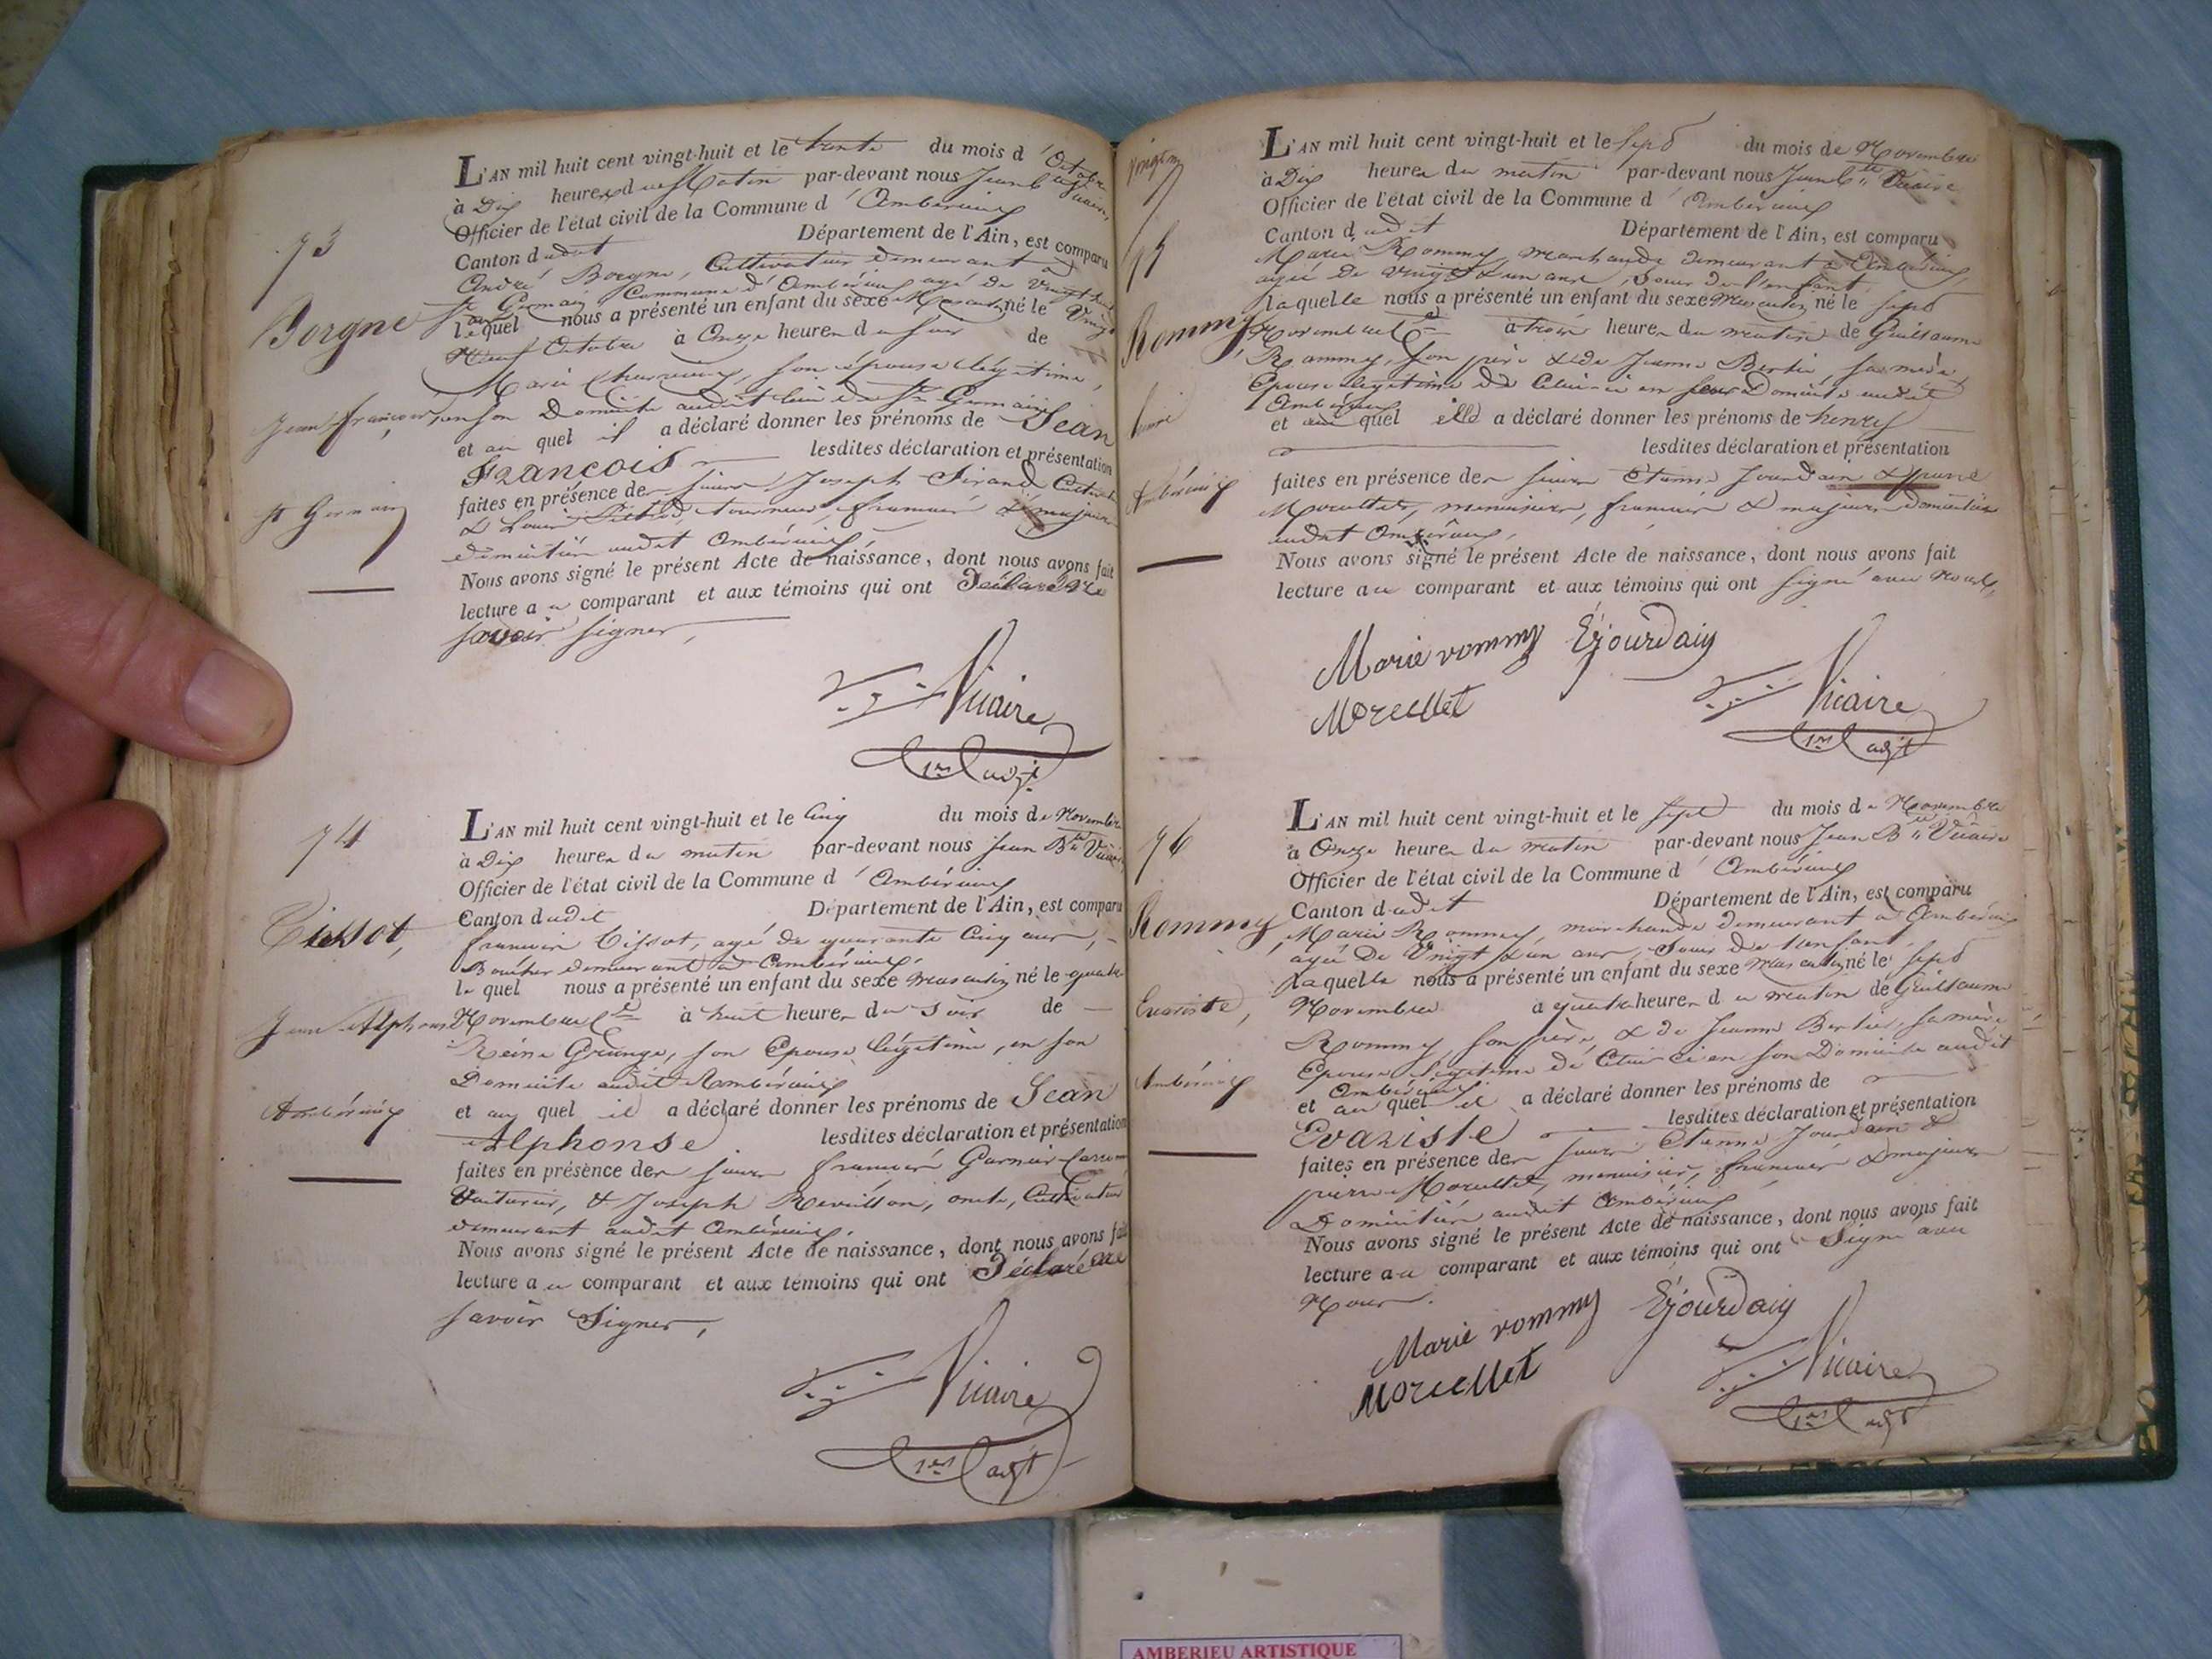 73
Borgne
Jean François
St Germain
L'AN mil huit cent vingt-huit et le trente du mois d'Octobre
à Dix heures du Matin par-devant nous Jean Bte Vicaire,
Officier de l'état civil de la Commune d'Ambérieux
Canton dudit Département de l'Ain, est comparu
André Borgne, Cultivateur demeurant à
St Germain Commune d'Ambérieux agé de vingt huit
ans lequel nous a présenté un enfant du sexe Masculin né le Vingt
Neuf Octobre à Onze heures du soir de
Marie, son épouse légitime,
en son Domicile audit lieu de St Germain
et au quel il a déclaré donner les prénoms de Jean
François lesdites déclaration et présentation
faites en présence des sieurs Joseph Sirand Cultivateur
& Louis, tourneur, français & majeurs
domiciliés audit Ambérieux,
Nous avons signé le présent Acte de naissance, dont nous avons fait
lecture au comparant et aux témoins qui ont Déclaré Ne
savoir signer,
Vicaire
1er adjt
74
Tissot,
Jean Alphonse
Ambérieux
L'AN mil huit cent vingt-huit et le Cinq du mois de Novembre
à Dix heures du matin par-devant nous Jean Bte Vicaire
Officier de l'état civil de la Commune d'Ambérieux
Canton dudit Département de l'Ain, est comparu
françois Tissot, agé de quarante Cinq ans,
Boucher demeurant à Ambérieux,
lequel nous a présenté un enfant du sexe masculin né le quatre
Novembre Ct à huit heures du Soir de
Reine Grange, son Epouse légitime, en son
Domicile audit Ambérieux
et au quel il a déclaré donner les prénoms de Jean
Alphonse lesdites déclaration et présentation
faites en présence des sieurs françois Garnier
Voiturier, & Joseph Revillon, oncle, Cultivateur
demeurant audit Ambérieux,
Nous avons signé le présent Acte de naissance, dont nous avons fait
lecture au comparant et aux témoins qui ont Déclaré ne
savoir Signer,
Vicaire
1er adjt
75
Rommy,
henri
Ambérieux
L'AN mil huit cent vingt-huit et le Sept du mois de Novembre
à Dix heures du matin par-devant nous Jean Bte Vicaire
Officier de l'état civil de la Commune d'Ambérieux
Canton dudit Département de l'Ain, est comparu
Marie Rommy, marchande demeurant à Ambérieux,
agée de vingt & un ans, Soeur de l'enfant,
laquelle nous a présenté un enfant du sexe masculin né le sept
Novembre Ct à trois heures du matin de Guillaume
Rommy, son père & de Jeanne Bertier, sa mère,
Epouse légitime de Celui-ci en son Domicile audit
Ambérieux
et au quel elle a déclaré donner les prénoms de henry
lesdites déclaration et présentation
faites en présence des sieurs Etienne Jourdain & pierre
Morcellet, menuisiers, français & majeurs Domiciliés
audit Ambérieux,
Nous avons signé le présent Acte de naissance, dont nous avons fait
lecture au comparant et aux témoins qui ont signé avec Nous,
Marie rommy Ejourdain
Morcellet
Vicaire
1er adjt
76
Rommy,
Evariste,
Ambérieux
L'AN mil huit cent vingt-huit et le sept du mois de Novembre
à Onze heures du matin par-devant nous Jean Bte Vicaire
Officier de l'état civil de la Commune d'Ambérieux
Canton dudit Département de l'Ain, est comparu
Marie Rommy, marchande demeurant à Ambérieux
agée de Vingt & un ans, Soeur de l'enfant,
laquelle nous a présenté un enfant du sexe masculin né le sept
Novembre à quatre heures du matin de Guillaume
Rommy, son père, & de Jeanne Bertier, sa mère
Epouse légitime de Celui-ci en son Domicile audit
Ambérieux
et au quel il a déclaré donner les prénoms de
Evariste lesdites déclaration et présentation
faites en présence des sieurs Etienne Jourdain &
pierre Morcellet, menuisiers, français & majeurs
Domiciliés audit Ambérieux
Nous avons signé le présent Acte de naissance, dont nous avons fait
lecture au comparant et aux témoins qui ont Signé avec
Nous.
Marie rommy Ejourdain
Morcellet
Vicaire
1er adjt
AMBERIEU ARTISTIQUE